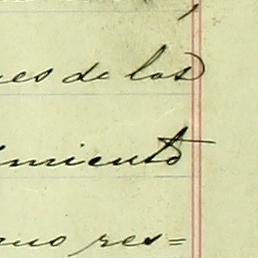 es de los
imiento
no res=